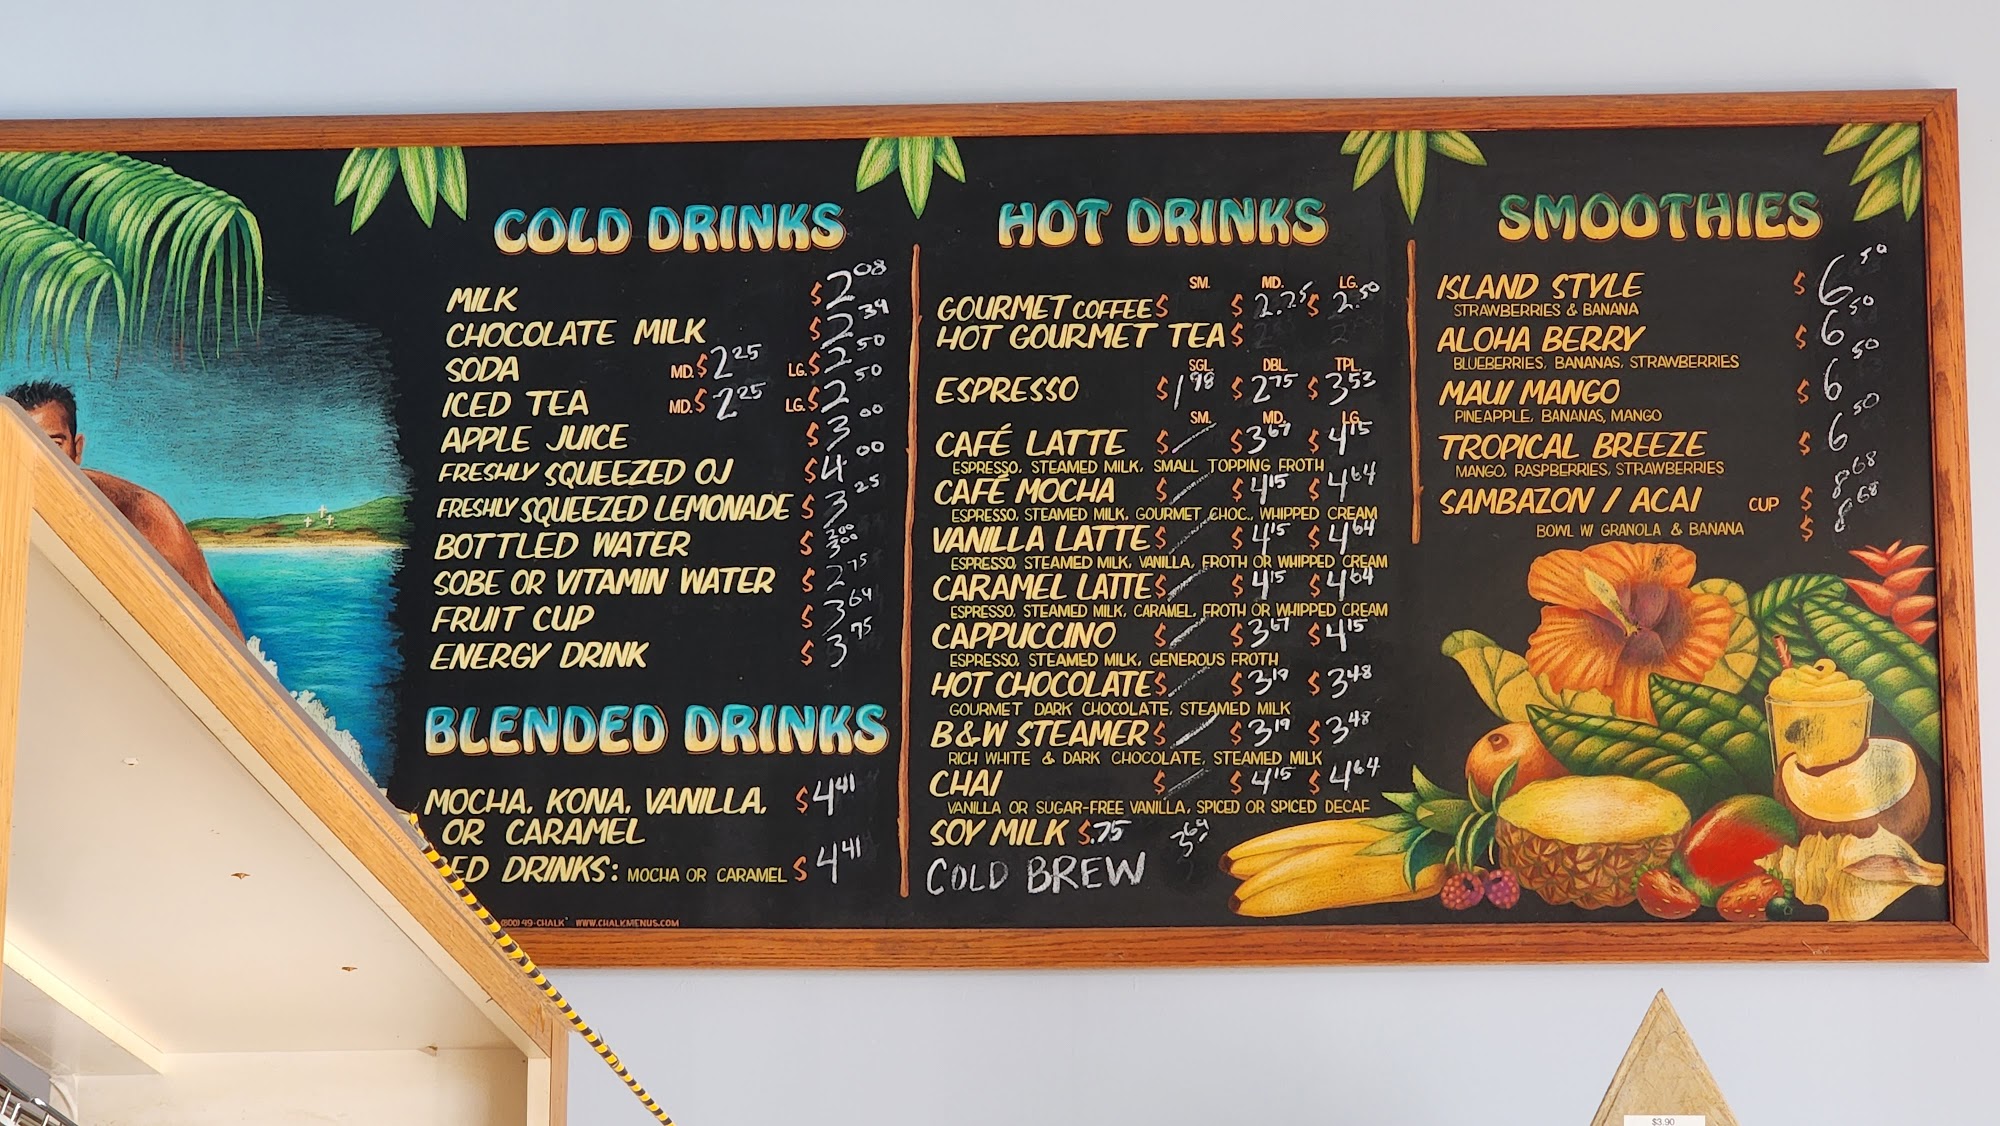 COLD DRINKS
MILK $2.08
CHOCOLATE MILK $2.39
SODA MD. $2.25 LG. $2.50
ICED TEA MD. $2.25 LG. $2.50
APPLE JUICE $3.00
FRESHLY SQUEEZED OJ $4.00
FRESHLY SQUEEZED LEMONADE $3.25
BOTTLED WATER $2.00 3.00
SOBE OR VITAMIN WATER $2.75
FRUIT CUP $3.64
ENERGY DRINK $3.75
BLENDED DRINKS
MOCHA, KONA, VANILLA, $4.41
OR CARAMEL
ED DRINKS: MOCHA OR CARAMEL $4.41
(800) 49-CHALK WWW.CHALKMENUS.COM
HOT DRINKS
SM. MD. LG.
GOURMET COFFEE $ $2.25 $2.50
HOT GOURMET TEA $
SGL. DBL. TPL.
ESPRESSO $1.98 $2.75 $3.53
SM. MD. LG.
CAFÉ LATTE $ $3.67 $4.15
ESPRESSO, STEAMED MILK, SMALL TOPPING FROTH
CAFÉ MOCHA $ $4.15 $4.64
ESPRESSO, STEAMED MILK, GOURMET CHOC., WHIPPED CREAM
VANILLA LATTE $ $4.15 $4.64
ESPRESSO, STEAMED MILK, VANILLA, FROTH OR WHIPPED CREAM
CARAMEL LATTE $ $4.15 $4.64
ESPRESSO, STEAMED MILK, CARAMEL, FROTH OR WHIPPED CREAM
CAPPUCCINO $ $3.67 $4.15
ESPRESSO, STEAMED MILK, GENEROUS FROTH
HOT CHOCOLATE $ $3.19 $3.48
GOURMET DARK CHOCOLATE, STEAMED MILK
B&W STEAMER $ $3.19 $3.48
RICH WHITE & DARK CHOCOLATE, STEAMED MILK
CHAI $ $4.15 $4.64
VANILLA OR SUGAR-FREE VANILLA, SPICED OR SPICED DECAF
SOY MILK $.75
COLD BREW 3.69
SMOOTHIES
ISLAND STYLE $6.50
STRAWBERRIES & BANANA
ALOHA BERRY $6.50
BLUEBERRIES, BANANAS, STRAWBERRIES
MAUI MANGO $6.50
PINEAPPLE, BANANAS, MANGO
TROPICAL BREEZE $6.50
MANGO, RASPBERRIES, STRAWBERRIES
SAMBAZON / ACAI CUP $8.68
BOWL W/ GRANOLA & BANANA $8.68
$3.90